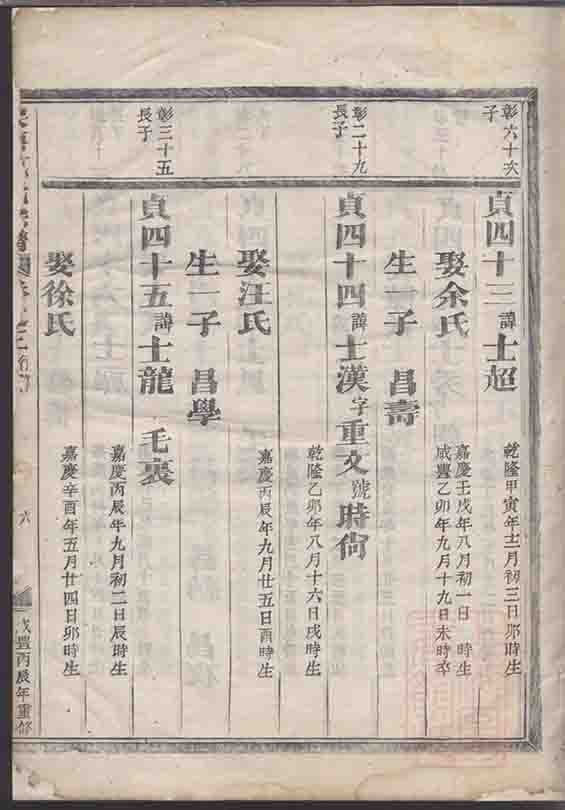 彰六十六
子
貞四十三諱士超
乾隆甲寅年十二月初三日卯時生
娶余氏
嘉慶壬戌年八月初一日 時生
咸豐乙卯年九月十九日未時卒
生一子 昌壽
彰二十九
長子
貞四十四諱士漢字重文號時尙
乾隆乙卯年八月十六日戌時生
娶汪氏
嘉慶丙辰年九月廿五日酉時生
生一子 昌學
彰三十五
長子
貞四十五諱士龍 毛裏
嘉慶丙辰年九月初二日辰時生
娶徐氏
嘉慶辛酉年五月廿四日卯時生
六
咸豐丙辰年重修